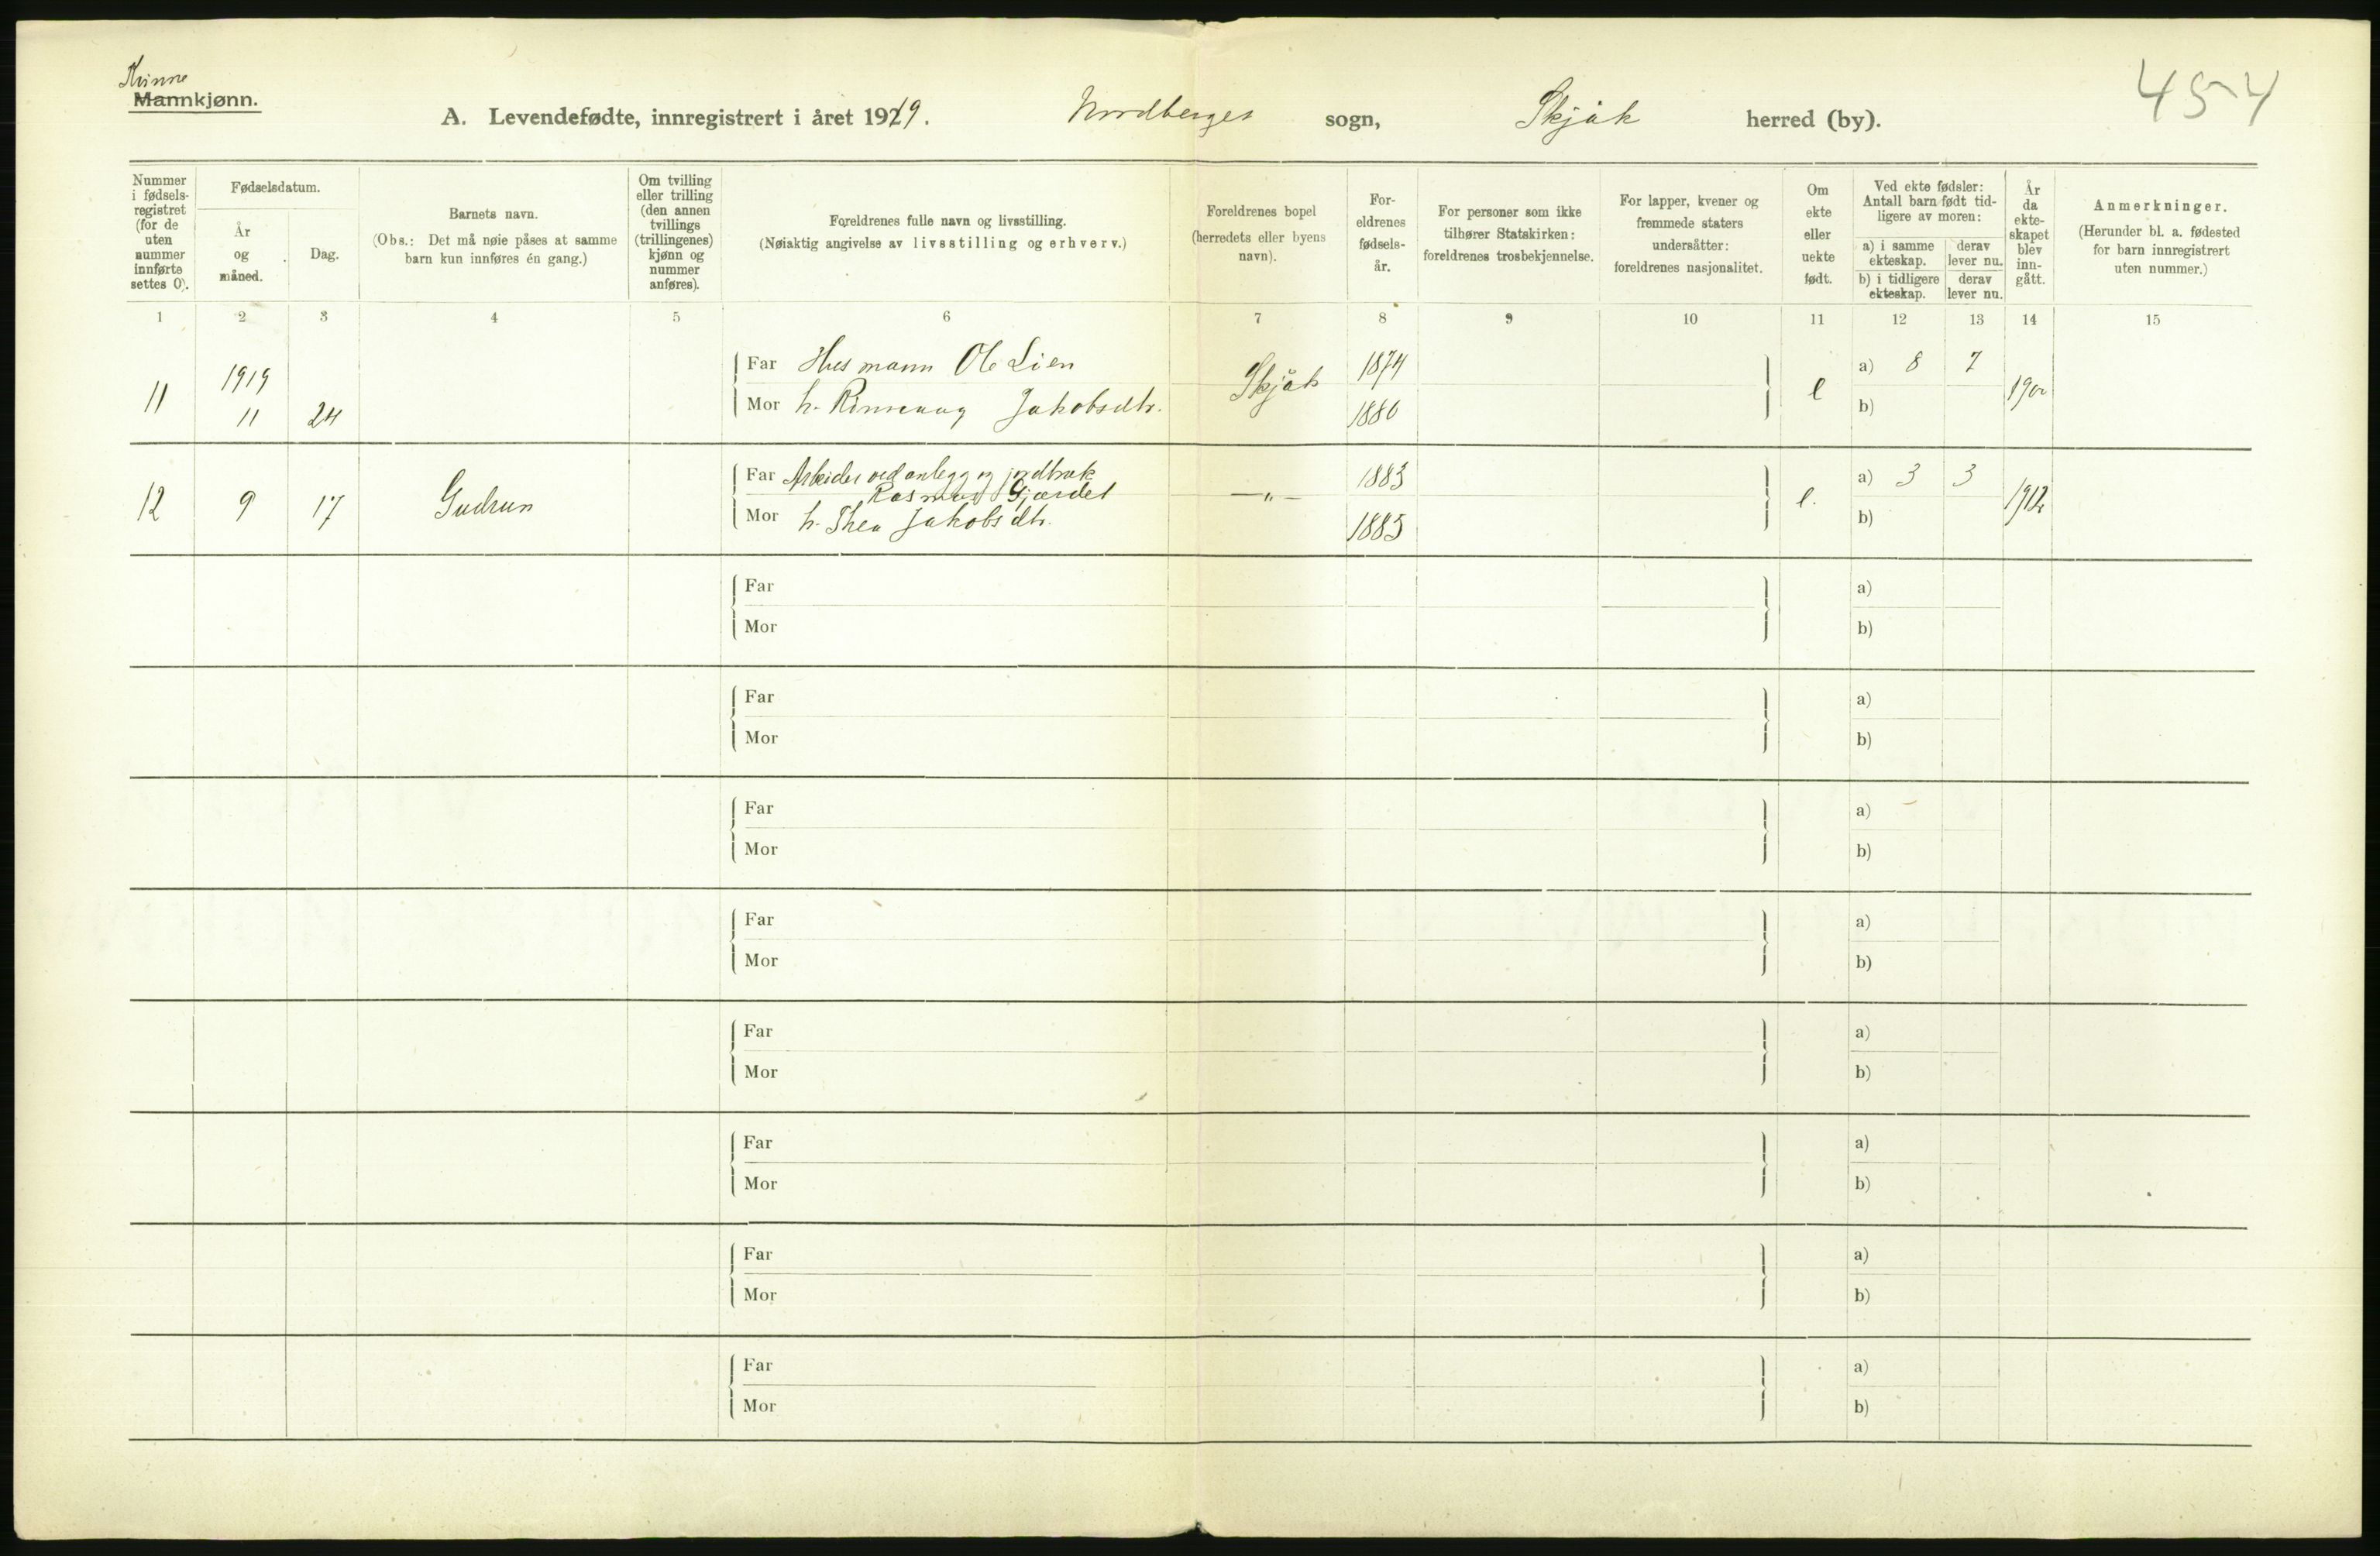 Kvinne
Mannkjønn.
454
A. Levendefødte, innregistrert i året 1919. Nordberges sogn, Skjåk herred (by).
Nummer i fødselsregistret (for de uten nummer innførte settes 0).
Fødselsdatum.
År og måned.
Dag.
Barnets navn.
(Obs.: Det må nøie påses at samme barn kun innføres én gang.)
Om tvilling eller trilling (den annen tvillings (trillingenes) kjønn og nummer anføres).
Foreldrenes fulle navn og livsstilling.
(Nøiaktig angivelse av livsstilling og erhverv.)
Foreldrenes bopel (herredets eller byens navn).
Foreldrenes fødselsår.
For personer som ikke tilhører Statskirken: foreldrenes trosbekjennelse.
For lapper, kvener og fremmede staters undersåtter: foreldrenes nasjonalitet.
Om ekte eller uekte født.
Ved ekte fødsler: Antall barn født tidligere av moren:
a) i samme ekteskap. derav lever nu.
b) i tidligere ekteskap. derav lever nu.
År da ekteskapet blev inngått.
Anmerkninger.
(Herunder bl. a. fødested for barn innregistrert uten nummer.)
1 2 3 4 5 6 7 8 9 10 11 12 13 14 15
11 1919 11 24
Far Husmann Ole Lien Skjåk 1874 e a) 8 7
Mor h. Jakobsdtr. 1880 b)
12 9 17 Gudrun
Far Arbeider ved anlegg og jordbruk —„— 1883 e. a) 3 3 1912
Rasmus Gjærdet
Mor h. Thea Jakobsdtr. 1885 b)
Far a)
Mor b)
Far a)
Mor b)
Far a)
Mor b)
Far a)
Mor b)
Far a)
Mor b)
Far a)
Mor b)
Far a)
Mor b)
Far a)
Mor b)